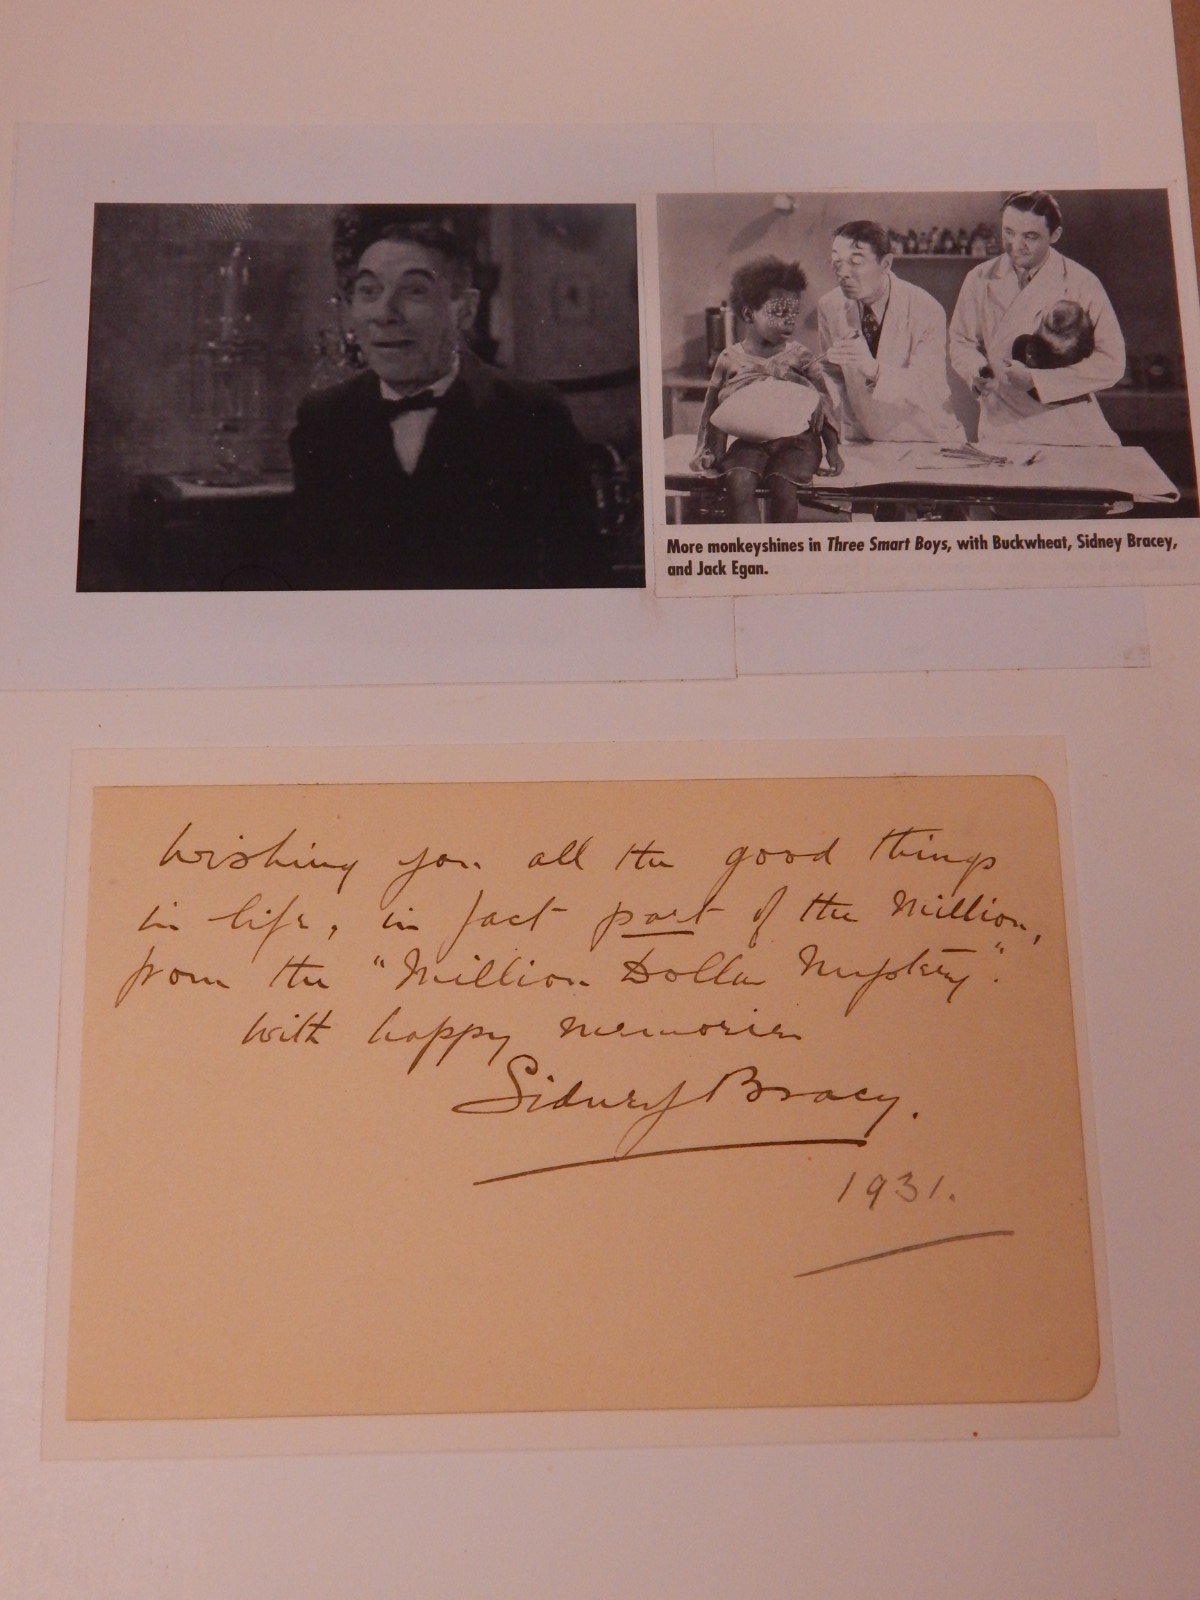 More monkeyshines in Three Smart Boys, with Buckwheat, Sidney Bracey,
and Jack Egan.
Wishing you all the good things
in life, in fact part of the Million,
from the "Million Dollar Mystery".
With happy memories
Sidney Bracy.
1931.